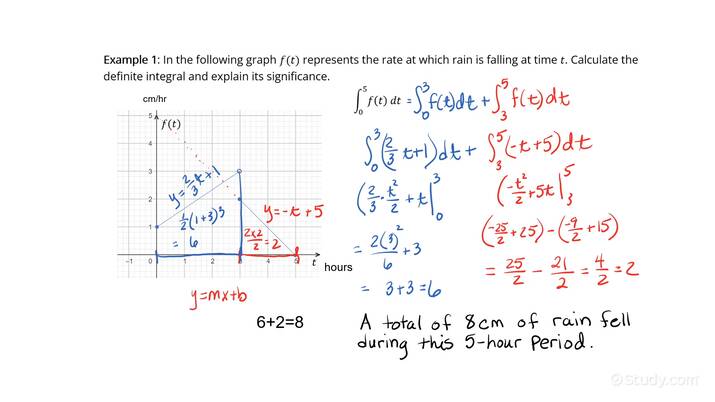 Example 1: In the following graph f(t) represents the rate at which rain is falling at time t. Calculate the
definite integral and explain its significance.
cm/hr
f(t)
5
4
3
2
1
-1 0 1 2 3 4 5 t hours
y = 2/3 t + 1
1/2 (1+3)3
= 6
y = -t + 5
2x2/2 = 2
y = mx + b
6+2=8
∫₀⁵ f(t) dt = ∫₀³ f(t)dt + ∫₃⁵ f(t)dt
∫₀³ (2/3 t+1)dt + ∫₃⁵ (-t+5)dt
(2/3 · t²/2 + t |₀³
(-t²/2 + 5t |₃⁵
= 2(3)²/6 + 3
(-25/2 + 25) - (-9/2 + 15)
= 3+3=6
= 25/2 - 21/2 = 4/2 = 2
A total of 8cm of rain fell
during this 5-hour period.
©Study.com